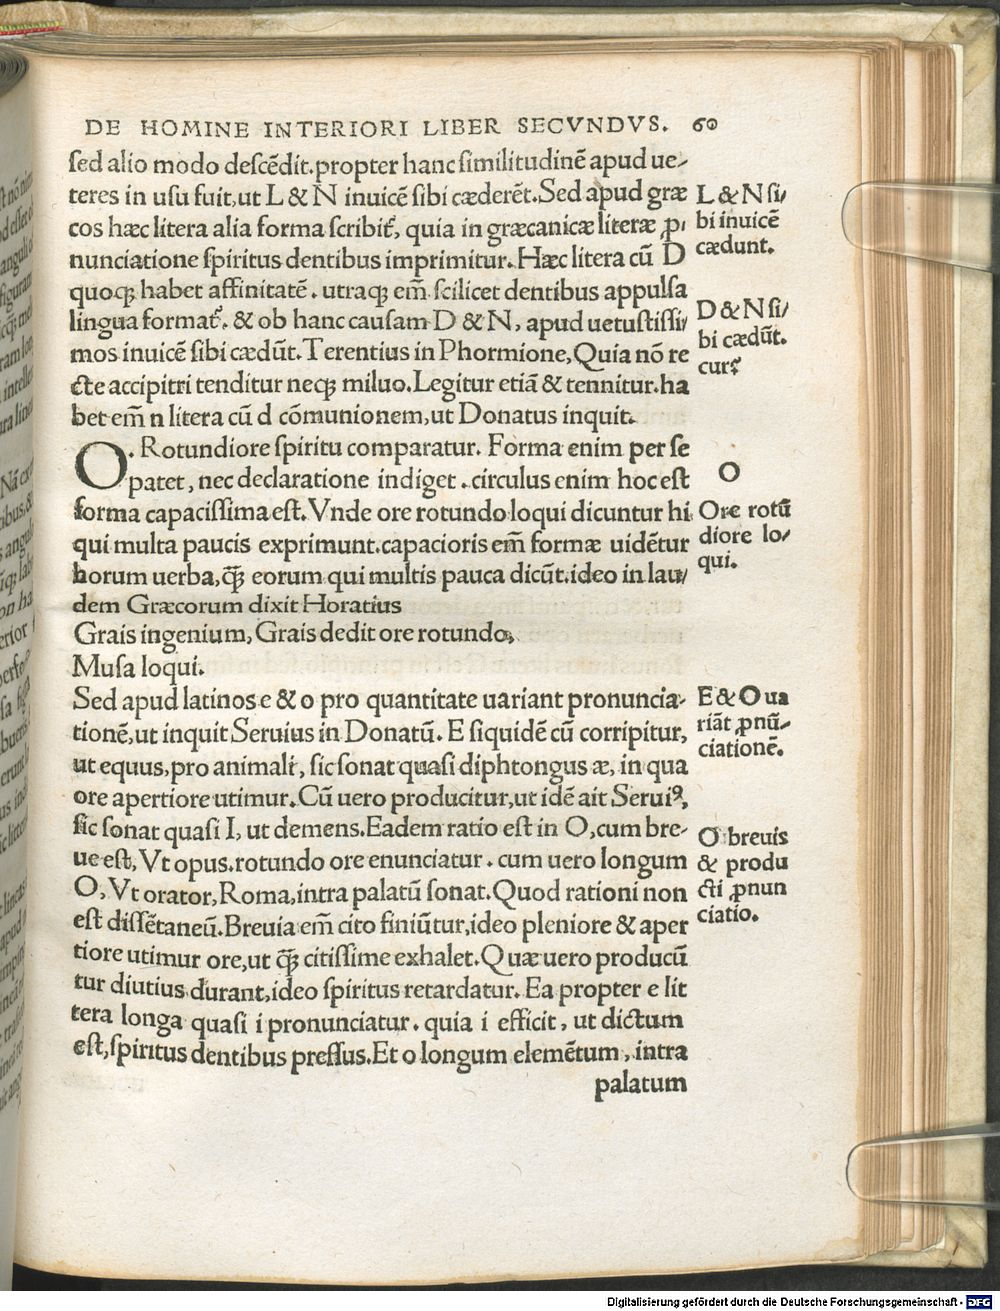 DE HOMINE INTERIORI LIBER SECVNDVS. 60
sed alio modo descēdit.propter hanc similitudinē apud ue-
teres in usu fuit,ut L & N inuicē sibi cæderēt.Sed apud græ
cos hæc litera alia forma scribit᷑, quia in græcanicæ literæ ꝓ-
nunciatione spiritus dentibus imprimitur.Hæc litera cū D
quoqꝫ habet affinitatē.utraqꝫ em̄ scilicet dentibus appulsa
lingua format᷑. & ob hanc causam D & N, apud uetustissi-
mos inuicē sibi cædūt.Terentius in Phormione,Quia nō re
cte accipitri tenditur neqꝫ miluo.Legitur etiā & tennitur.ha
bet em̄ n litera cū d cōmunionem,ut Donatus inquit.
O. Rotundiore spiritu comparatur. Forma enim per se
patet, nec declaratione indiget.circulus enim hoc est
forma capacissima est.Vnde ore rotundo loqui dicuntur hi
qui multa paucis exprimunt.capacioris em̄ formæ uidētur
horum uerba,q̄ꝫ eorum qui multis pauca dicūt.ideo in lau-
dem Græcorum dixit Horatius
Grais ingenium, Grais dedit ore rotundo,
Musa loqui.
Sed apud latinos e & o pro quantitate uariant pronuncia-
tionē,ut inquit Seruius in Donatū. E siquidē cū corripitur,
ut equus,pro animali, sic sonat quasi diphtongus æ, in qua
ore apertiore utimur.Cū uero producitur,ut idē ait Seruiꝰ,
sic sonat quasi I, ut demens.Eadem ratio est in O,cum bre-
ue est, Vt opus.rotundo ore enunciatur. cum uero longum
O, Vt orator, Roma,intra palatū sonat.Quod rationi non
est dissētaneū.Breuia em̄ cito finiūtur,ideo pleniore & aper
tiore utimur ore,ut q̄ꝫ citissime exhalet.Quæ uero producū
tur diutius durant,ideo spiritus retardatur. Ea propter e lit
tera longa quasi i pronunciatur. quia i efficit, ut dictum
est,spiritus dentibus pressus.Et o longum elemētum, intra
palatum
L & N si-
bi inuicē
cædunt.
D & N si-
bi cædūt.
O
Ore rotū
diore lo-
qui.
E & O ua
riāt ꝓnū-
ciationē.
O breuis
& produ
cti ꝓnun
ciatio.
Digitalisierung gefördert durch die Deutsche Forschungsgemeinschaft - DFG